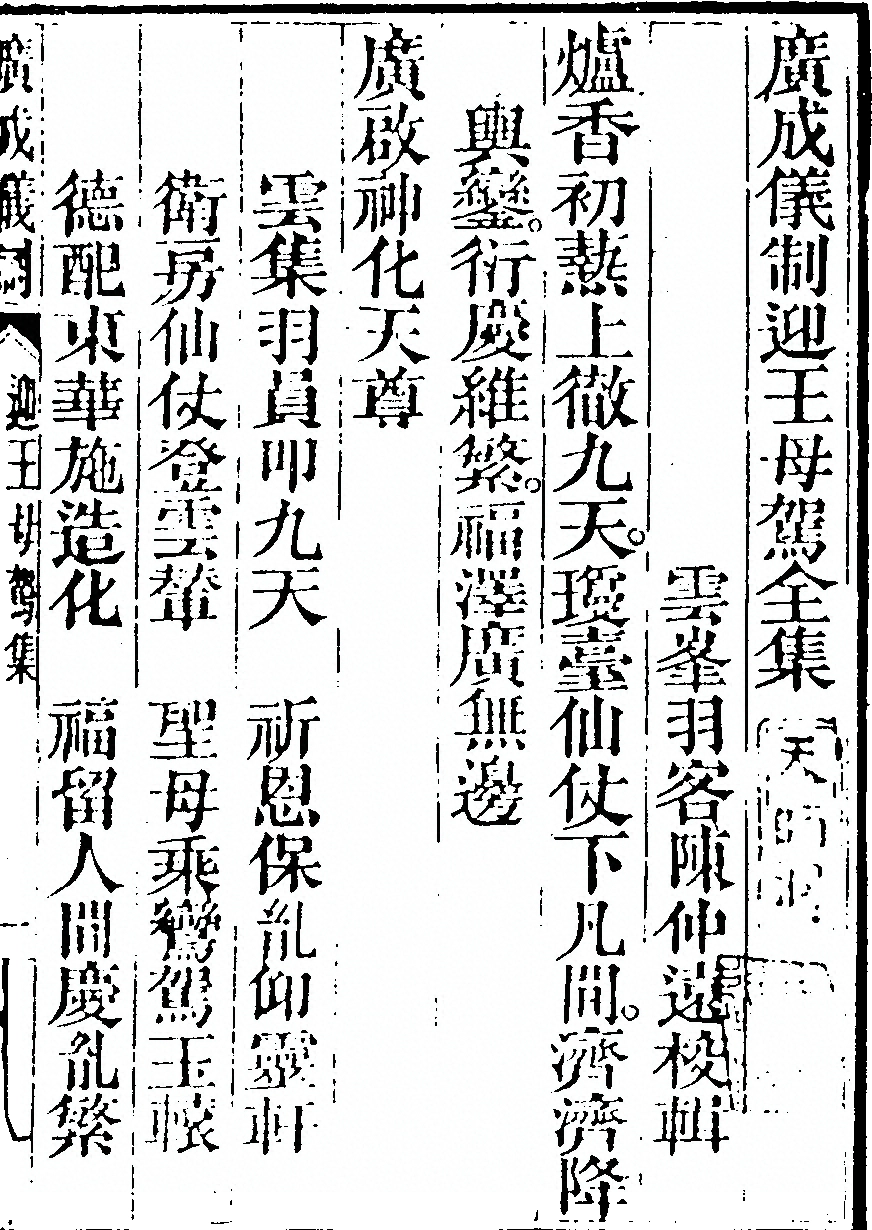 廣成儀制迎王母駕全集
天師洞
雲峯羽客陳仲遠校輯
爐香初爇上徹九天。瓊臺仙仗下凡間。濟濟降
輿鑾。衍慶維繁。福澤廣無邊
廣啟神化天尊
雲集羽員叩九天　祈恩保胤仰靈軒
衛房仙仗登雲輦　聖母乘鸞駕玉轅
德配東華施造化　福留人間慶胤繁
廣成儀制
迎王母駕集